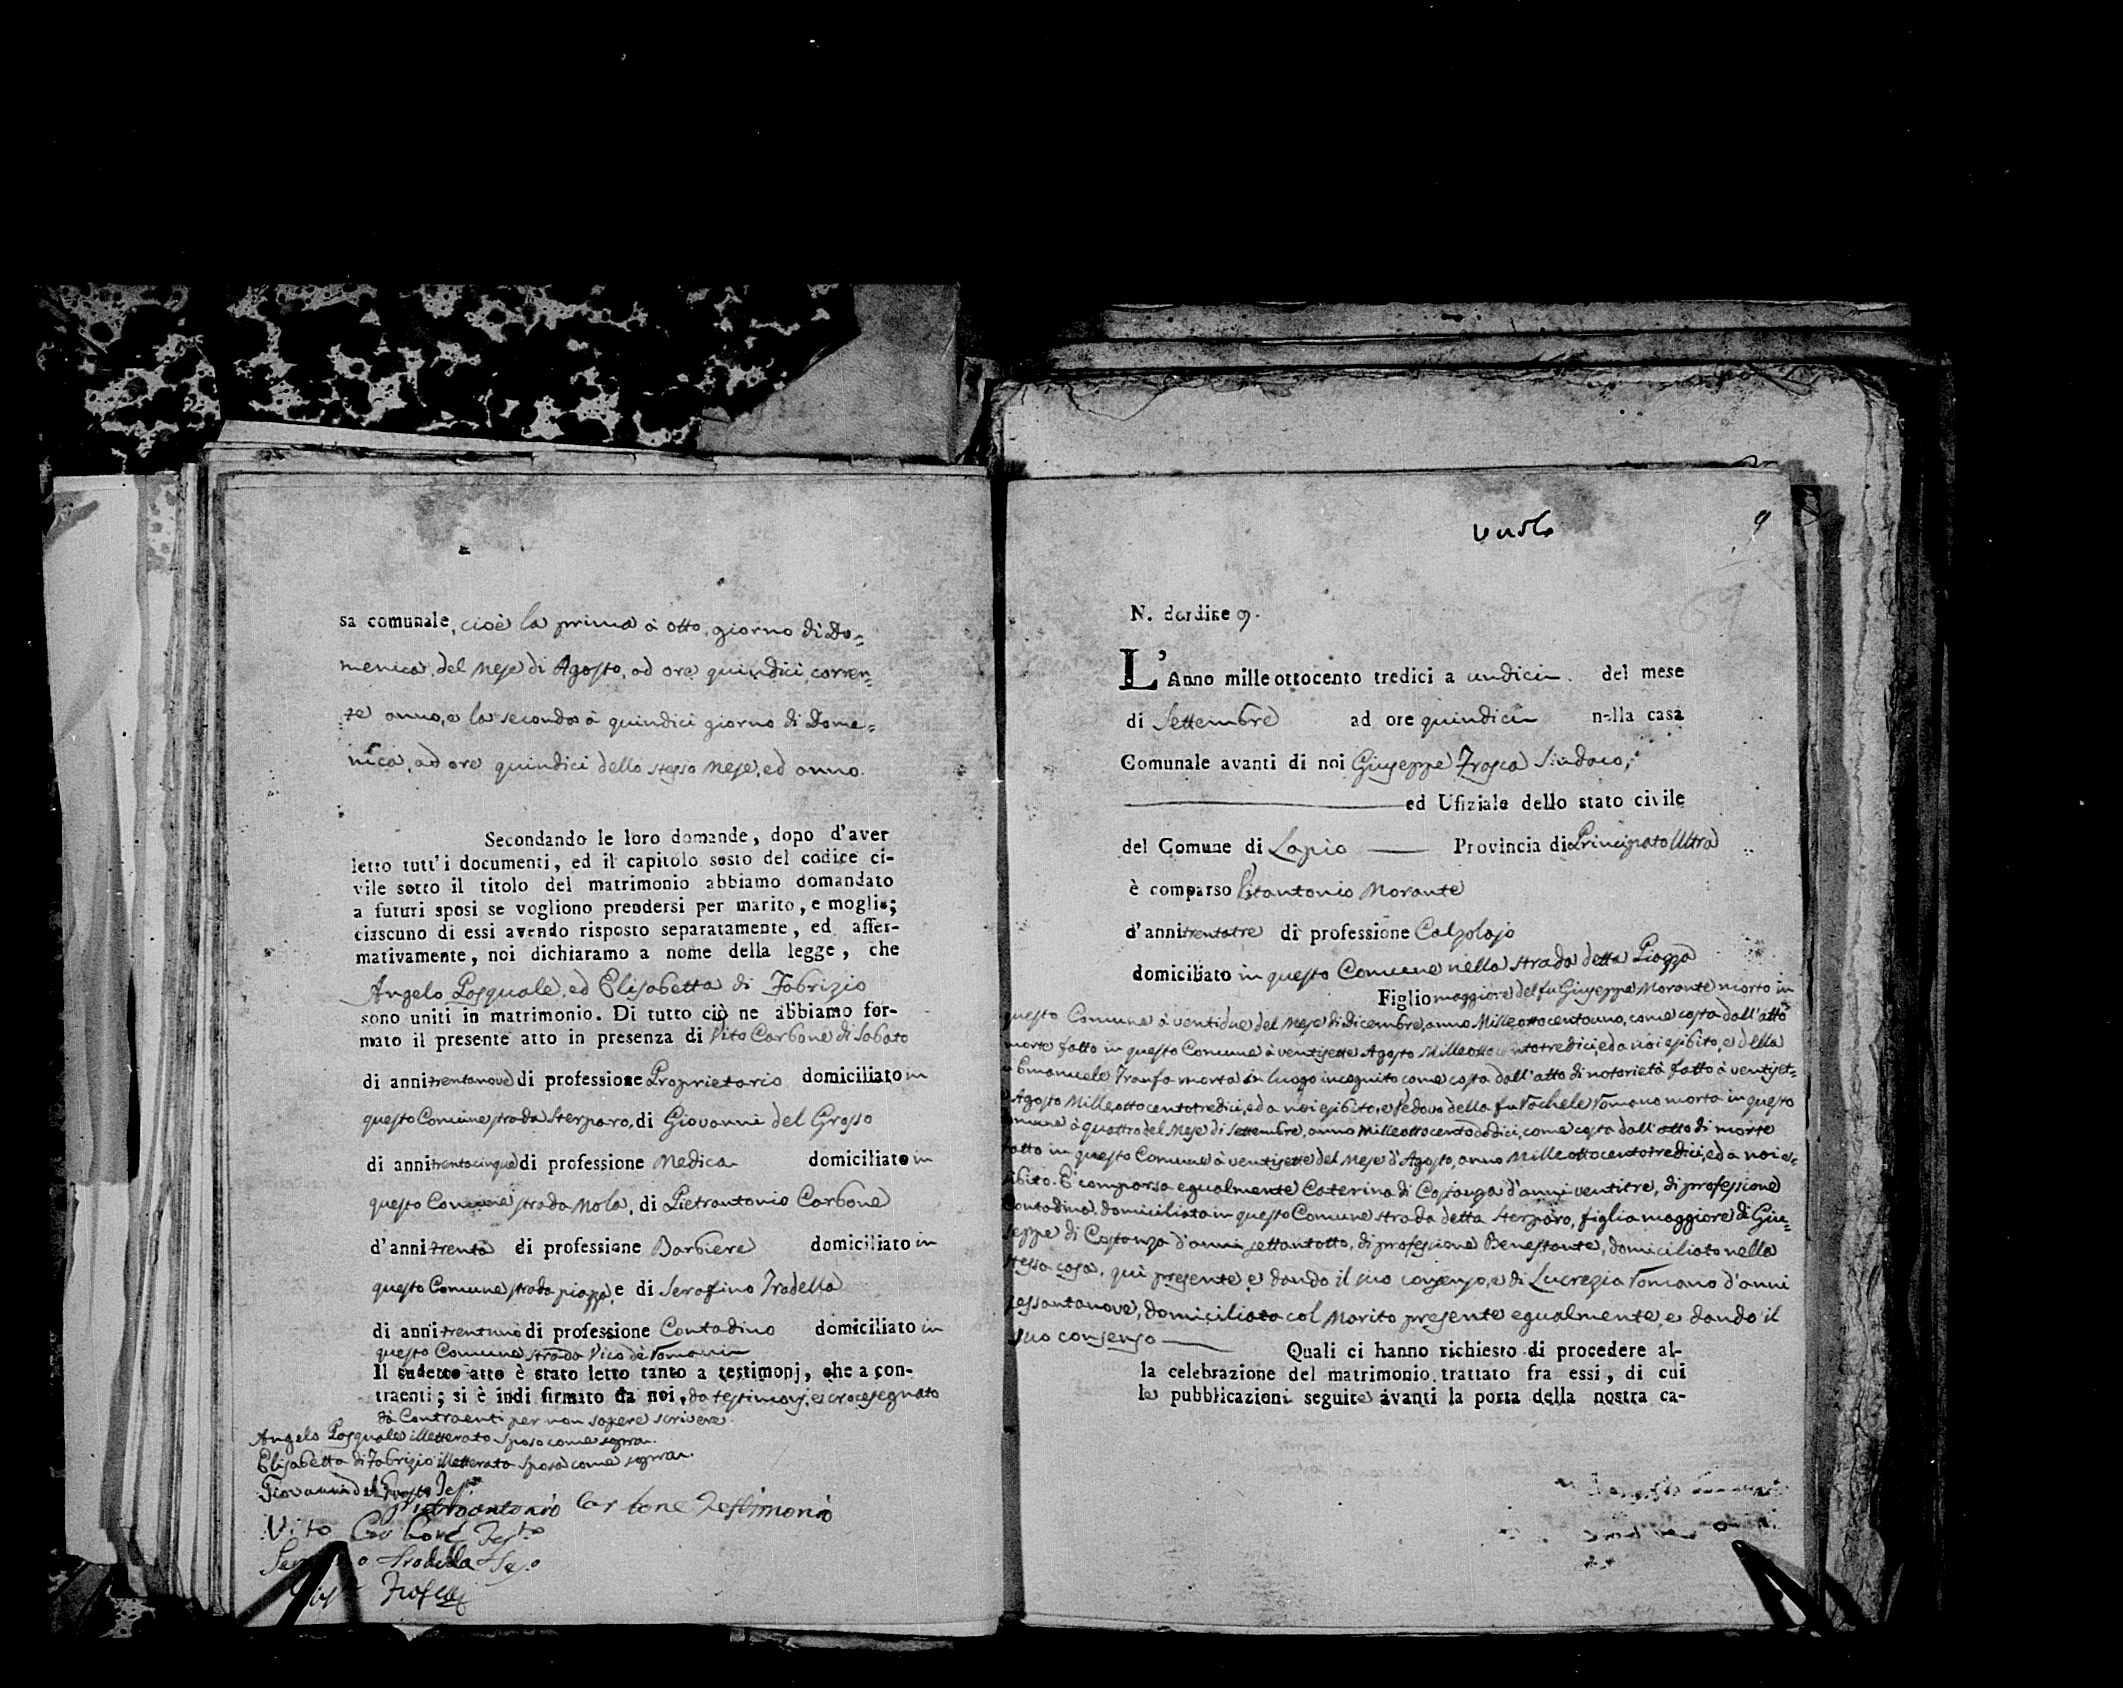 sa comunale, cioè la prima à otto, giorno di Do=
menica, del Mese di Agosto, ad ore quindici, corren=
te anno, e la seconda à quindici giorno di Dome=
nica, ad ore quindici dello stesso Mese, ed anno.
Secondando le loro domande, dopo d'aver
letto tutt'i documenti, ed il capitolo sesto del codice ci-
vile sotto il titolo del matrimonio abbiamo domandato
a futuri sposi se vogliono prendersi per marito, e moglie;
ciascuno di essi avendo risposto separatamente, ed affer-
mativamente, noi dichiaramo a nome della legge, che
Angelo Pasquale, ed Elisabetta di Fabrizio
sono uniti in matrimonio. Di tutto ciò ne abbiamo for-
mato il presente atto in presenza di Vito Carbone di Sabato
di anni trentanove di professione Proprietario domiciliato in
questo Comune strada Sterparo, di Giovanni del Grosso
di anni trentacinque di professione Medica domiciliato in
questo Comune strada Mola, di Pietrantonio Carbone
d'anni trenta di professione Barbiere domiciliato in
questo Comune strada piazza, e di Serafino Tradella
di anni trentuno di professione Contadino domiciliato in
questo Comune strada Vico de Romani
Il sudetto atto è stato letto tanto a testimonj, che a con-
traenti; si è indi firmato da noi, da testimonj, e crocesegnato
dà Contraenti per non sapere scrivere.
Angelo Pasquale illetterato sposo come sopra.
Elisabetta di Fabrizio illetterata sposa come sopra.
Giovanni del Grosso Tes.
Pietroantonio Carbone Testimonio
Vito Carbone Tes.to
Tradella Tes.o
Frosca
9
N. dordine 9.
L'Anno mille ottocento tredici a undici del mese
di Settembre ad ore quindici nella casa
Comunale avanti di noi Giuseppe Frosca Sindaco,
ed Ufiziale dello stato civile
del Comune di Lapio Provincia di Principato Ultra
è comparso Vitantonio Morante
d'anni trentatre di professione Calzolajo
domiciliato in questo Comune nella strada detta Piazza
Figlio maggiore del fu Giuseppe Morante morto in
questo Comune à ventidue del Mese di dicembre, anno Milleottocentouno, come costa dall'atto
morte fatto in questo Comune à ventisette Agosto Milleottocentotredici, ed a noi esibito, e della
Emanuele Tranfa morta in luogo incognito come costa dall'atto di notorietà fatto à ventiset=
Agosto Milleottocentotredici, ed a noi esibito, e Vedovo della fu Rachele Romano morta in questo
omune à quattro del Mese di Settembre, anno Milleottocentododici, come costa dall'atto di morte
fatto in questo Comune à ventisette del Mese d'Agosto, anno Milleottocentotredici, ed a noi e=
sibito. È comparsa egualmente Caterina di Costanza d'anni ventitre, di professione
Contadina, domiciliata in questo Comune strada detta Sterparo, figlia maggiore di Giu=
seppe di Costanza d'anni settantotto, di professione Benestante, domiciliato nella
stessa casa, qui presente e dando il suo consenso, e di Lucrezia Romano d'anni
sessantanove, domiciliata col Marito presente egualmente, e dando il
suo consenso
Quali ci hanno richiesto di procedere al-
la celebrazione del matrimonio trattato fra essi, di cui
le pubblicazioni seguite avanti la porta della nostra ca-